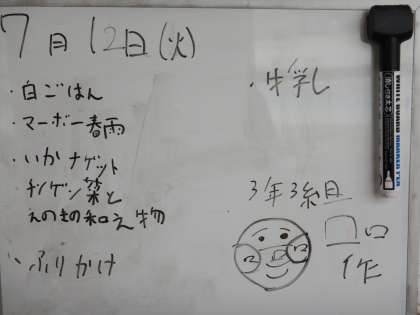 7月12日(火)
・白ごはん
・マーボー春雨
・いかナゲット
チンゲン菜と
えのきの和え物
・ふりかけ
・牛乳
3年3組
作
WHITE BOARD MARKER PEN